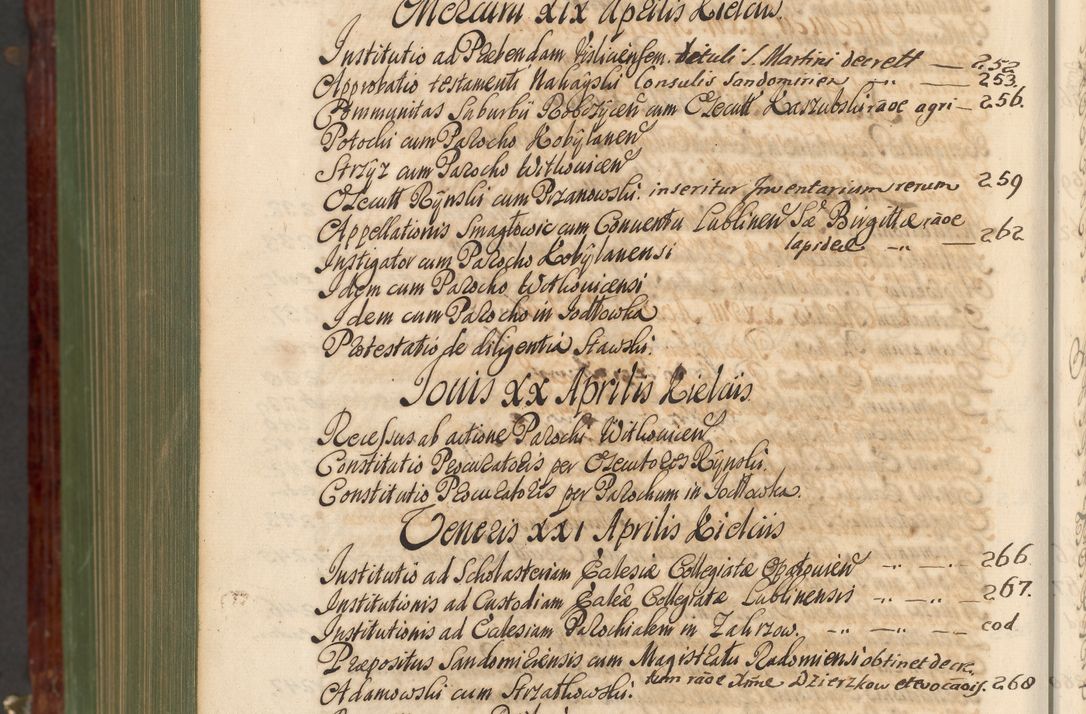 Mercurii XIX Aprilis Kielciis.
Institutio ad Præbendam Visliciensem tituli S. Martini decrett — 252
Approbatio testamenti Consulis Sandomirien — " — 253.
Communitas Suburbii cum Execut. Kaszubski raoe agri — 256.
Potocki cum Parocho Kobÿlanen
Strzÿz cum Parocho Witkowicen
Execut Rÿnski cum Przanowski. inseritur Inventarium rerum 259
Appellationis Smagłowic cum Conventu Lublinen Sæ Birgittæ, raoe
lapideæ — " — 262
Instigator cum Parocho Kobÿlanensi
Idem cum Parocho Witkowicensi
Idem cum Parocho in Jodłowka
Protestatio de diligentia Stawski.
Jouis XX Aprilis Kielciis
Recessus ab actione Parochi Witkowicen
Constitutio Procuratoris per Executores Rÿnski.
Constitutio Procuratoris per Parochum in Jodłowka.
Veneris XXI Aprilis Kielciis
Institutio ad Scholasteriam Ecclesiæ Collegiatæ Opatouien — " — 266
Institutionis ad Custodiam Eccleæ Collegiatæ Lublinensis " — " — 267.
Institutionis ad Eclesiam Parochialem in Zakrzow. " — " — eod
Præpositus Sandomiriensis cum Magistratu Radomiensi obtinet decre,
tum raoe Dzierzkow et evocaois. 268
Adamowski cum Strzałkowski.